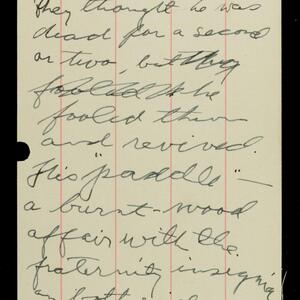 they thought he was
dead for a second
or two, but they
fooled he
fooled them
and revived.
His "paddle" —
a burnt-wood
affair with the
fraternity insignia
on both